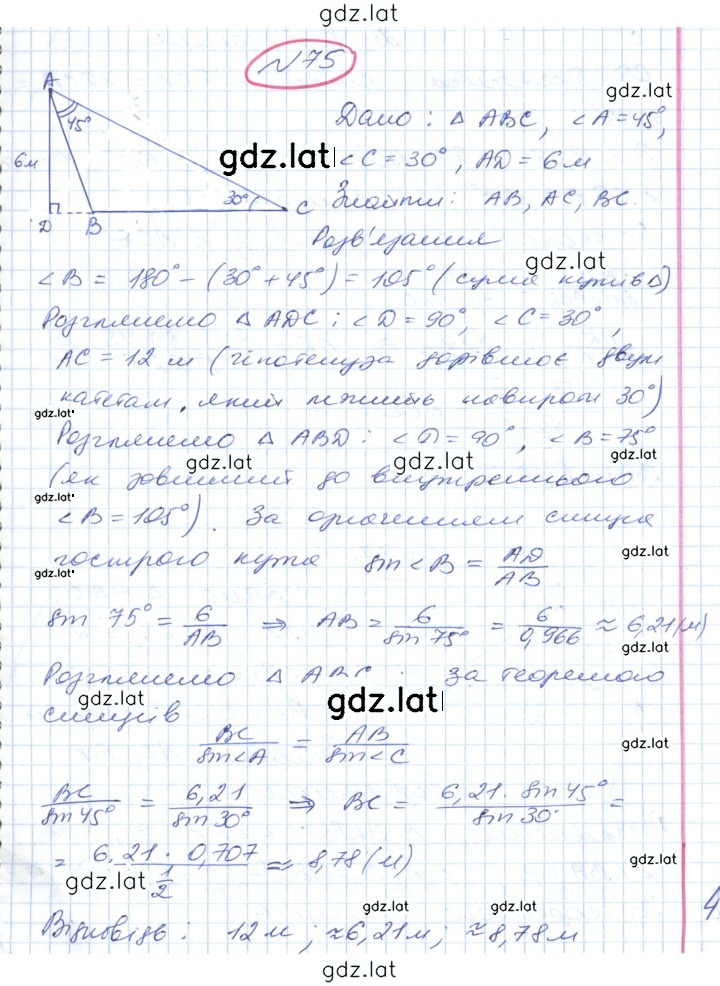 gdz.lat
N75
A
45°
6м
30°
D B C
gdz.lat
gdz.lat
Дано: △ ABC, ∠A = 45°,
∠C = 30°, AD = 6 м
Знайти: AB, AC, BC.
Розв'язання
gdz.lat
∠B = 180° − (30° + 45°) = 105° (сума кутів △)
Розглянемо △ ADC: ∠D = 90°, ∠C = 30°,
AC = 12 м (гіпотенуза дорівнює двум
катетам, який лежить навпроти 30°)
gdz.lat
Розглянемо △ ABD: ∠D = 90°, ∠B = 75°
gdz.lat gdz.lat gdz.lat
(як зовнішній до внутрішнього
gdz.lat
∠B = 105°). За означенням синуса
гострого кута sin∠B = AD/AB
gdz.lat
gdz.lat
sin 75° = 6/AB ⇒ AB = 6/sin 75° = 6/0,966 ≈ 6,21 (м)
gdz.lat
Розглянемо △ ABC: за теоремою
gdz.lat
синусів
gdz.lat
BC/sin∠A = AB/sin∠C
gdz.lat
BC/sin 45° = 6,21/sin 30° ⇒ BC = 6,21 · sin 45°/sin 30° =
= 6,21 · 0,707/½ ≈ 8,78 (м)
gdz.lat
gdz.lat
gdz.lat gdz.lat
4
Відповідь: 12 м; ≈ 6,21 м; ≈ 8,78 м
gdz.lat